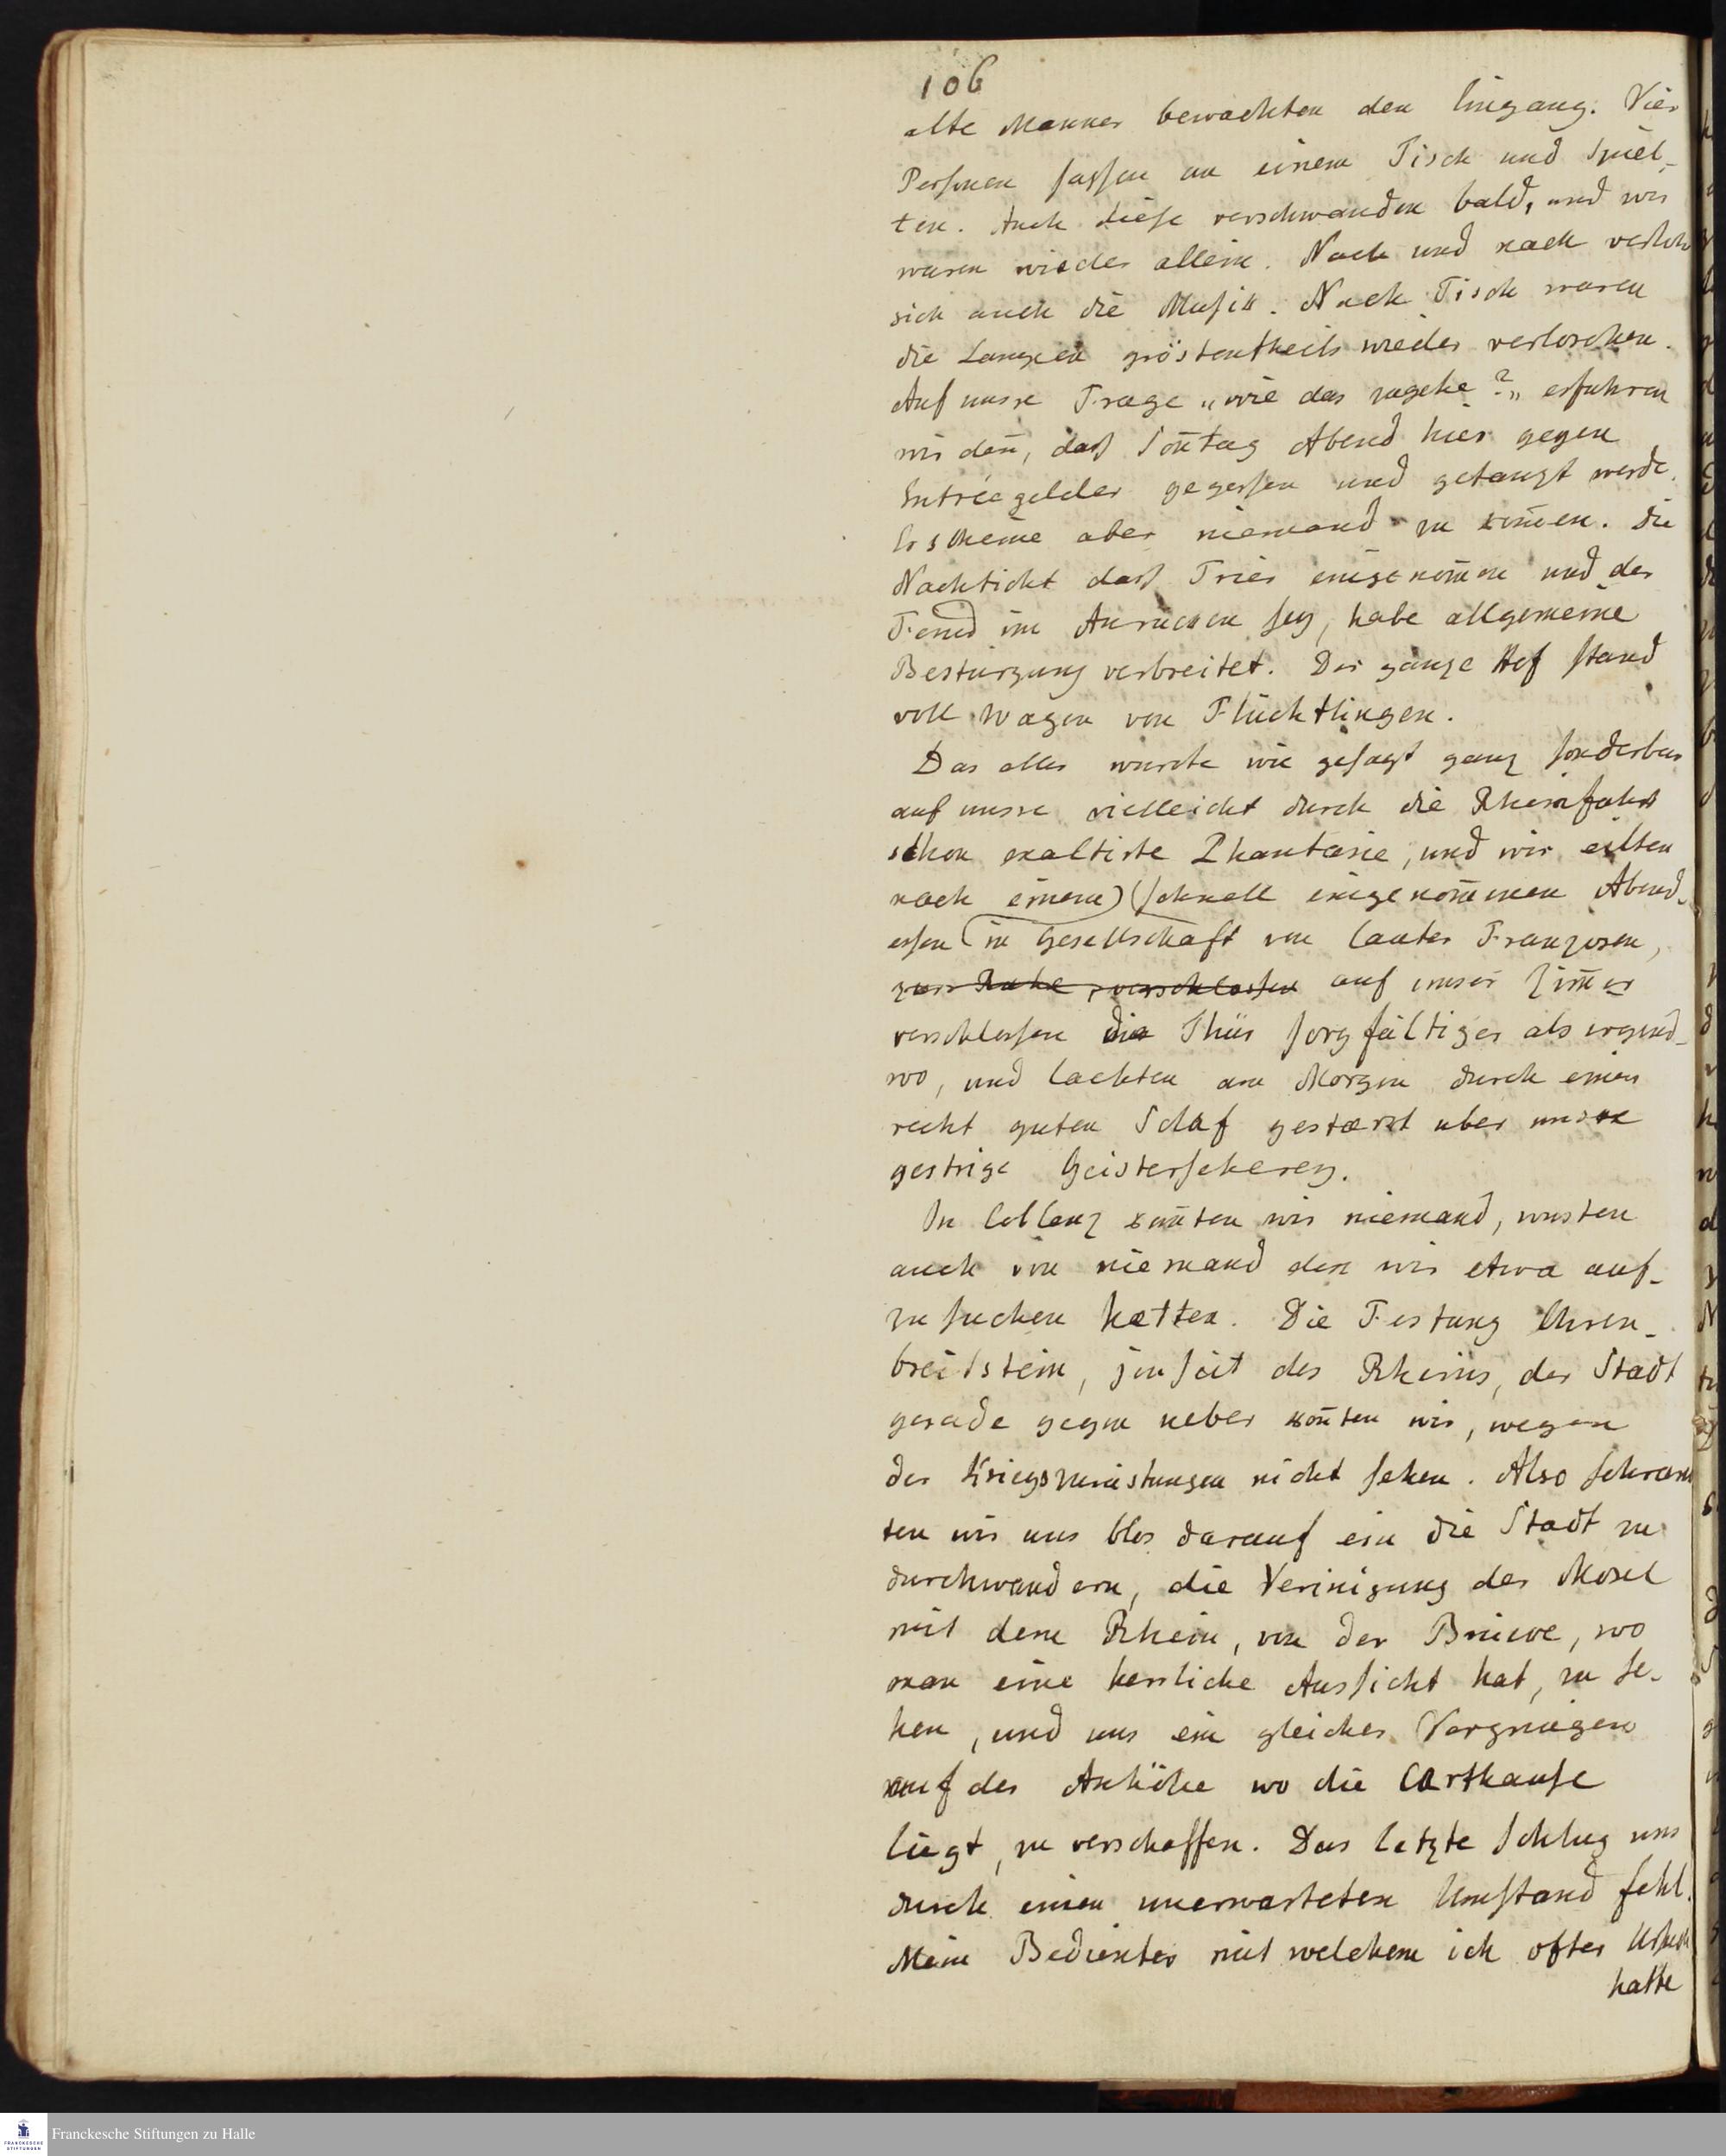 106
alte Männer bewachten den Eingang. Vier
Personen sassen an einem Tisch und spiel-
ten. Auch diese verschwanden bald, und wir
waren wieder allein. Nach und nach verlohr
sich auch die Musik. Nach Tisch waren
die Lampen gröstentheils wieder verloschen.
Auf unsre Frage „wie das zugehe?„ erfuhren
wir den̄, daß Son̄tag Abend hier gegen
Entréegelder gegessen und getanzt werde.
Es scheine aber niemand zu kom̄en. Die
Nachricht daß Trier eingenom̄en und der
Feind im Anrücken sey, habe allgemeine
Bestürzung verbreitet. Der ganze Hof stand
voll Wagen von Flüchtlingen.
Das alles wurckte wie gesagt ganz sonderbar
auf unsre vielleicht durch die Rheinfahrt
schon exaltirte Phantasie, und wir eilten
nach einem) (schnell eingenom̄enen Abend-
essen in Gesellschaft von lauter Franzosen,
zur Ruhe, verschlossen auf unser Zim̄er
verschlossen die Thür sorgfältiger als irgend-
wo, und lachten am Morgen durch einen
recht guten Schlaf gestärkt über unsre
gestrige Geisterseherey.
In Coblenz kan̄ten wir niemand, wusten
auch von niemand den wir etwa auf-
zu suchen hätten. Die Festung Ehren-
breitstein, jenseit des Rheins, der Stadt
gerade gegen ueber kon̄ten wir, wegen
der Kriegszurüstungen nicht sehen. Also schränk
ten wir uns blos darauf ein die Stadt zu
durchwandern, die Vereinigung der Mosel
mit dem Rhein, von der Brücke, wo
man eine herrliche Aussicht hat, zu se-
hen, und uns ein gleiches Vergnügen
auf der Anhöhe wo die Carthause
liegt, zu verschaffen. Das letzte schlug uns
durch einen unerwarteten Umstand fehl.
Mein Bedienter mit welchem ich öfter Ursach
hatte
Franckesche Stiftungen zu Halle
FRANCKESCHE
STIFTUNGEN